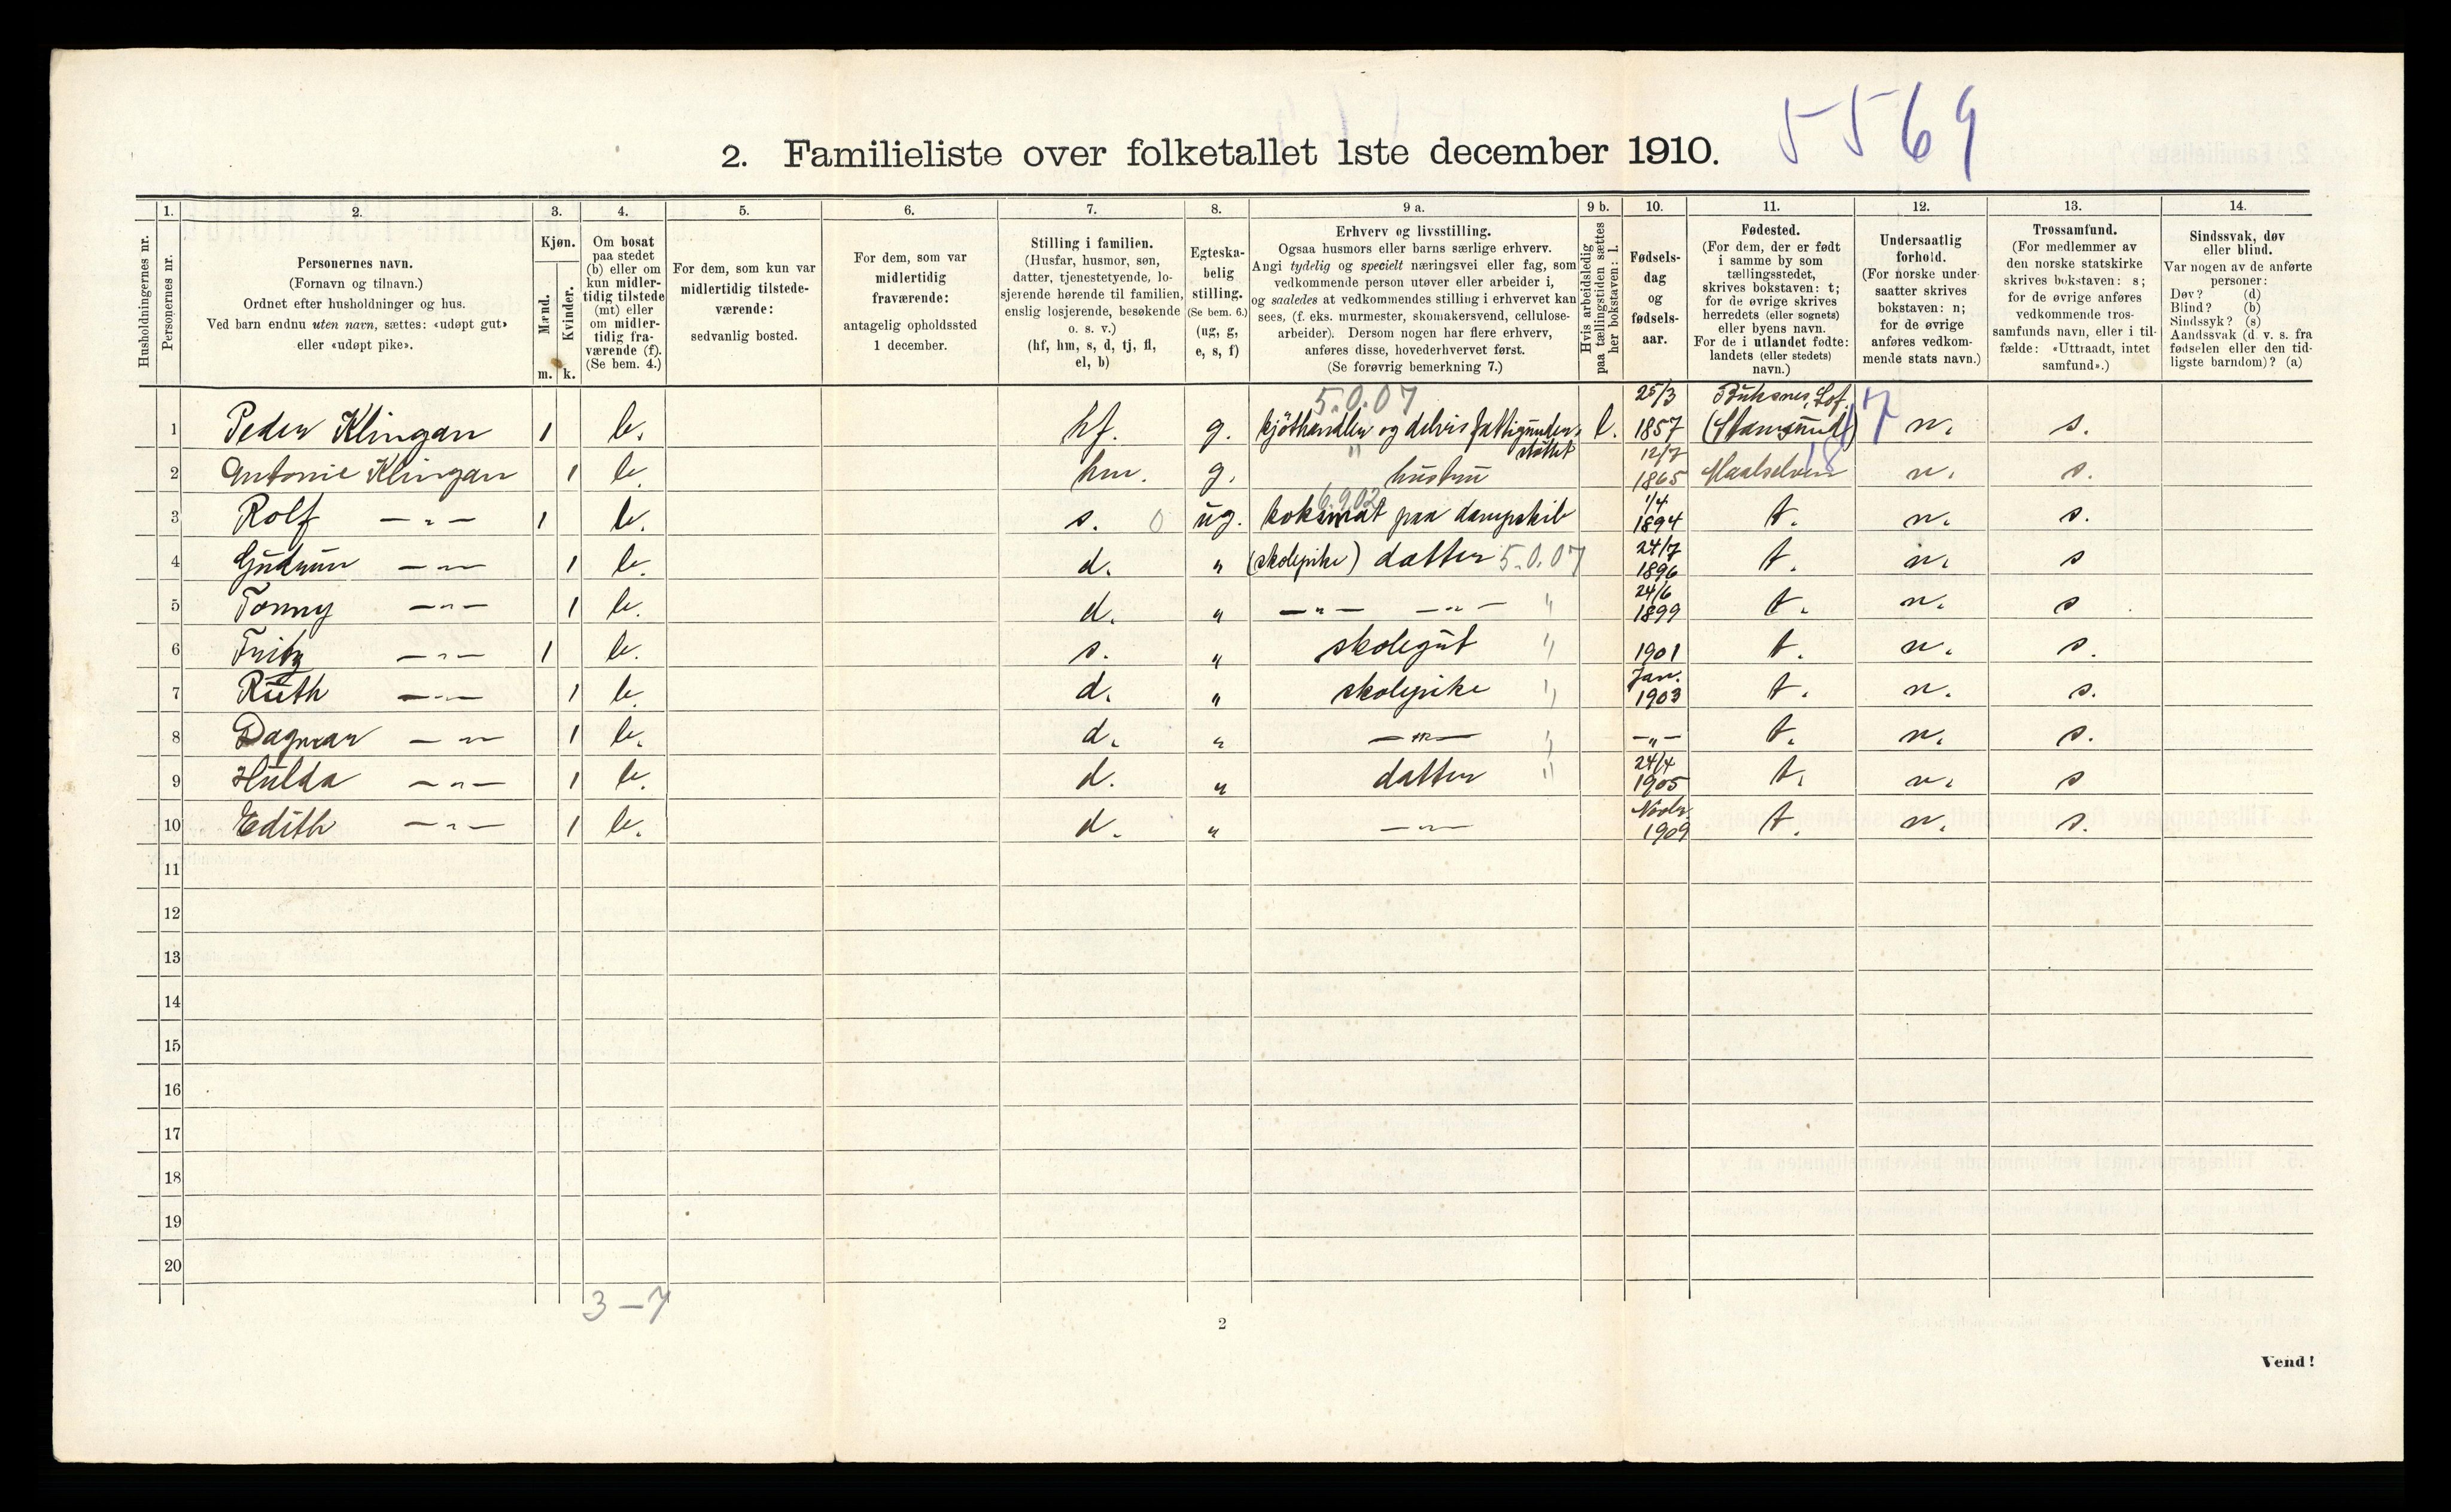 5569
2. Familieliste over folketallet 1ste december 1910.
1. 2. 3. 4. 5. 6. 7. 8. 9 a. 9 b. 10. 11. 12. 13. 14.
Husholdningernes nr.
Personernes nr.
Personernes navn.
(Fornavn og tilnavn.)
Ordnet efter husholdninger og hus.
Ved barn endnu uten navn, sættes: «udøpt gut»
eller «udøpt pike».
Kjøn.
Mænd.
Kvinder.
m. k.
Om bosat
paa stedet
(b) eller om
kun midler-
tidig tilstede
(mt) eller
om midler-
tidig fra-
værende (f).
(Se bem. 4.)
For dem, som kun var
midlertidig tilstede-
værende:
sedvanlig bosted.
For dem, som var
midlertidig
fraværende:
antagelig opholdssted
1 december.
Stilling i familien.
(Husfar, husmor, søn,
datter, tjenestetyende, lo-
sjerende hørende til familien,
enslig losjerende, besøkende
o. s. v.)
(hf, hm, s, d, tj, fl,
el, b)
Egteska-
belig
stilling.
(Se bem. 6.)
(ug, g,
e, s, f)
Erhverv og livsstilling.
Ogsaa husmors eller barns særlige erhverv.
Angi tydelig og specielt næringsvei eller fag, som
vedkommende person utøver eller arbeider i,
og saaledes at vedkommendes stilling i erhvervet kan
sees, (f. eks. murmester, skomakersvend, cellulose-
arbeider). Dersom nogen har flere erhverv,
anføres disse, hovederhvervet først.
(Se forøvrig bemerkning 7.)
Hvis arbeidsledig
paa tællingstiden sættes
her bokstaven: l.
Fødsels-
dag
og
fødsels-
aar.
Fødested.
(For dem, der er født
i samme by som
tællingsstedet,
skrives bokstaven: t;
for de øvrige skrives
herredets (eller sognets)
eller byens navn.
For de i utlandet fødte:
landets (eller stedets)
navn.)
Undersaatlig
forhold.
(For norske under-
saatter skrives
bokstaven: n;
for de øvrige
anføres vedkom-
mende stats navn.)
Trossamfund.
(For medlemmer av
den norske statskirke
skrives bokstaven: s;
for de øvrige anføres
vedkommende tros-
samfunds navn, eller i til-
fælde: «Uttraadt, intet
samfund».)
Sindssvak, døv
eller blind.
Var nogen av de anførte
personer:
Døv? (d)
Blind? (b)
Sindssyk? (s)
Aandssvak (d. v. s. fra
fødselen eller den tid-
ligste barndom)? (a)
5.0.07 25/3 Buksnes, Lof.
1 Peder Klingan 1 b. hf. g. kjöthandler og delvis fattigunder- l. 1857 (Stamsund) 17 n. s.
støttet
12/7
2 Antonie Klingan 1 b. hm. g. " hustru 1865 Maalselven 18 n. s.
6.9.02 1/4
3 Rolf —"— 1 b. s. 0 ug. koksmat paa dampskib 1894 t. n. s.
24/7
4 Gudrun —"— 1 b. d. " (skolepike) datter 5.0.07 1896 t. n. s
24/6
5 Tonny —"— 1 b. d. " —"— —"— " 1899 t. n. s
6 Fritz —"— 1 b. s. " skolegut " 1901 t. n. s.
Jan.
7 Ruth —"— 1 b. d. " skolepike " 1903 t. n. s.
8 Dagmar —"— 1 b. d. " —"— " —"— t. n. s.
24/4
9 Hulda —"— 1 b. d. " datter " 1905 t. n. s
Novbr.
10 Edith —"— 1 b. d. " —"— 1909 t. n. s.
11
12
13
14
15
16
17
18
19
20
3-7
2
Vend!